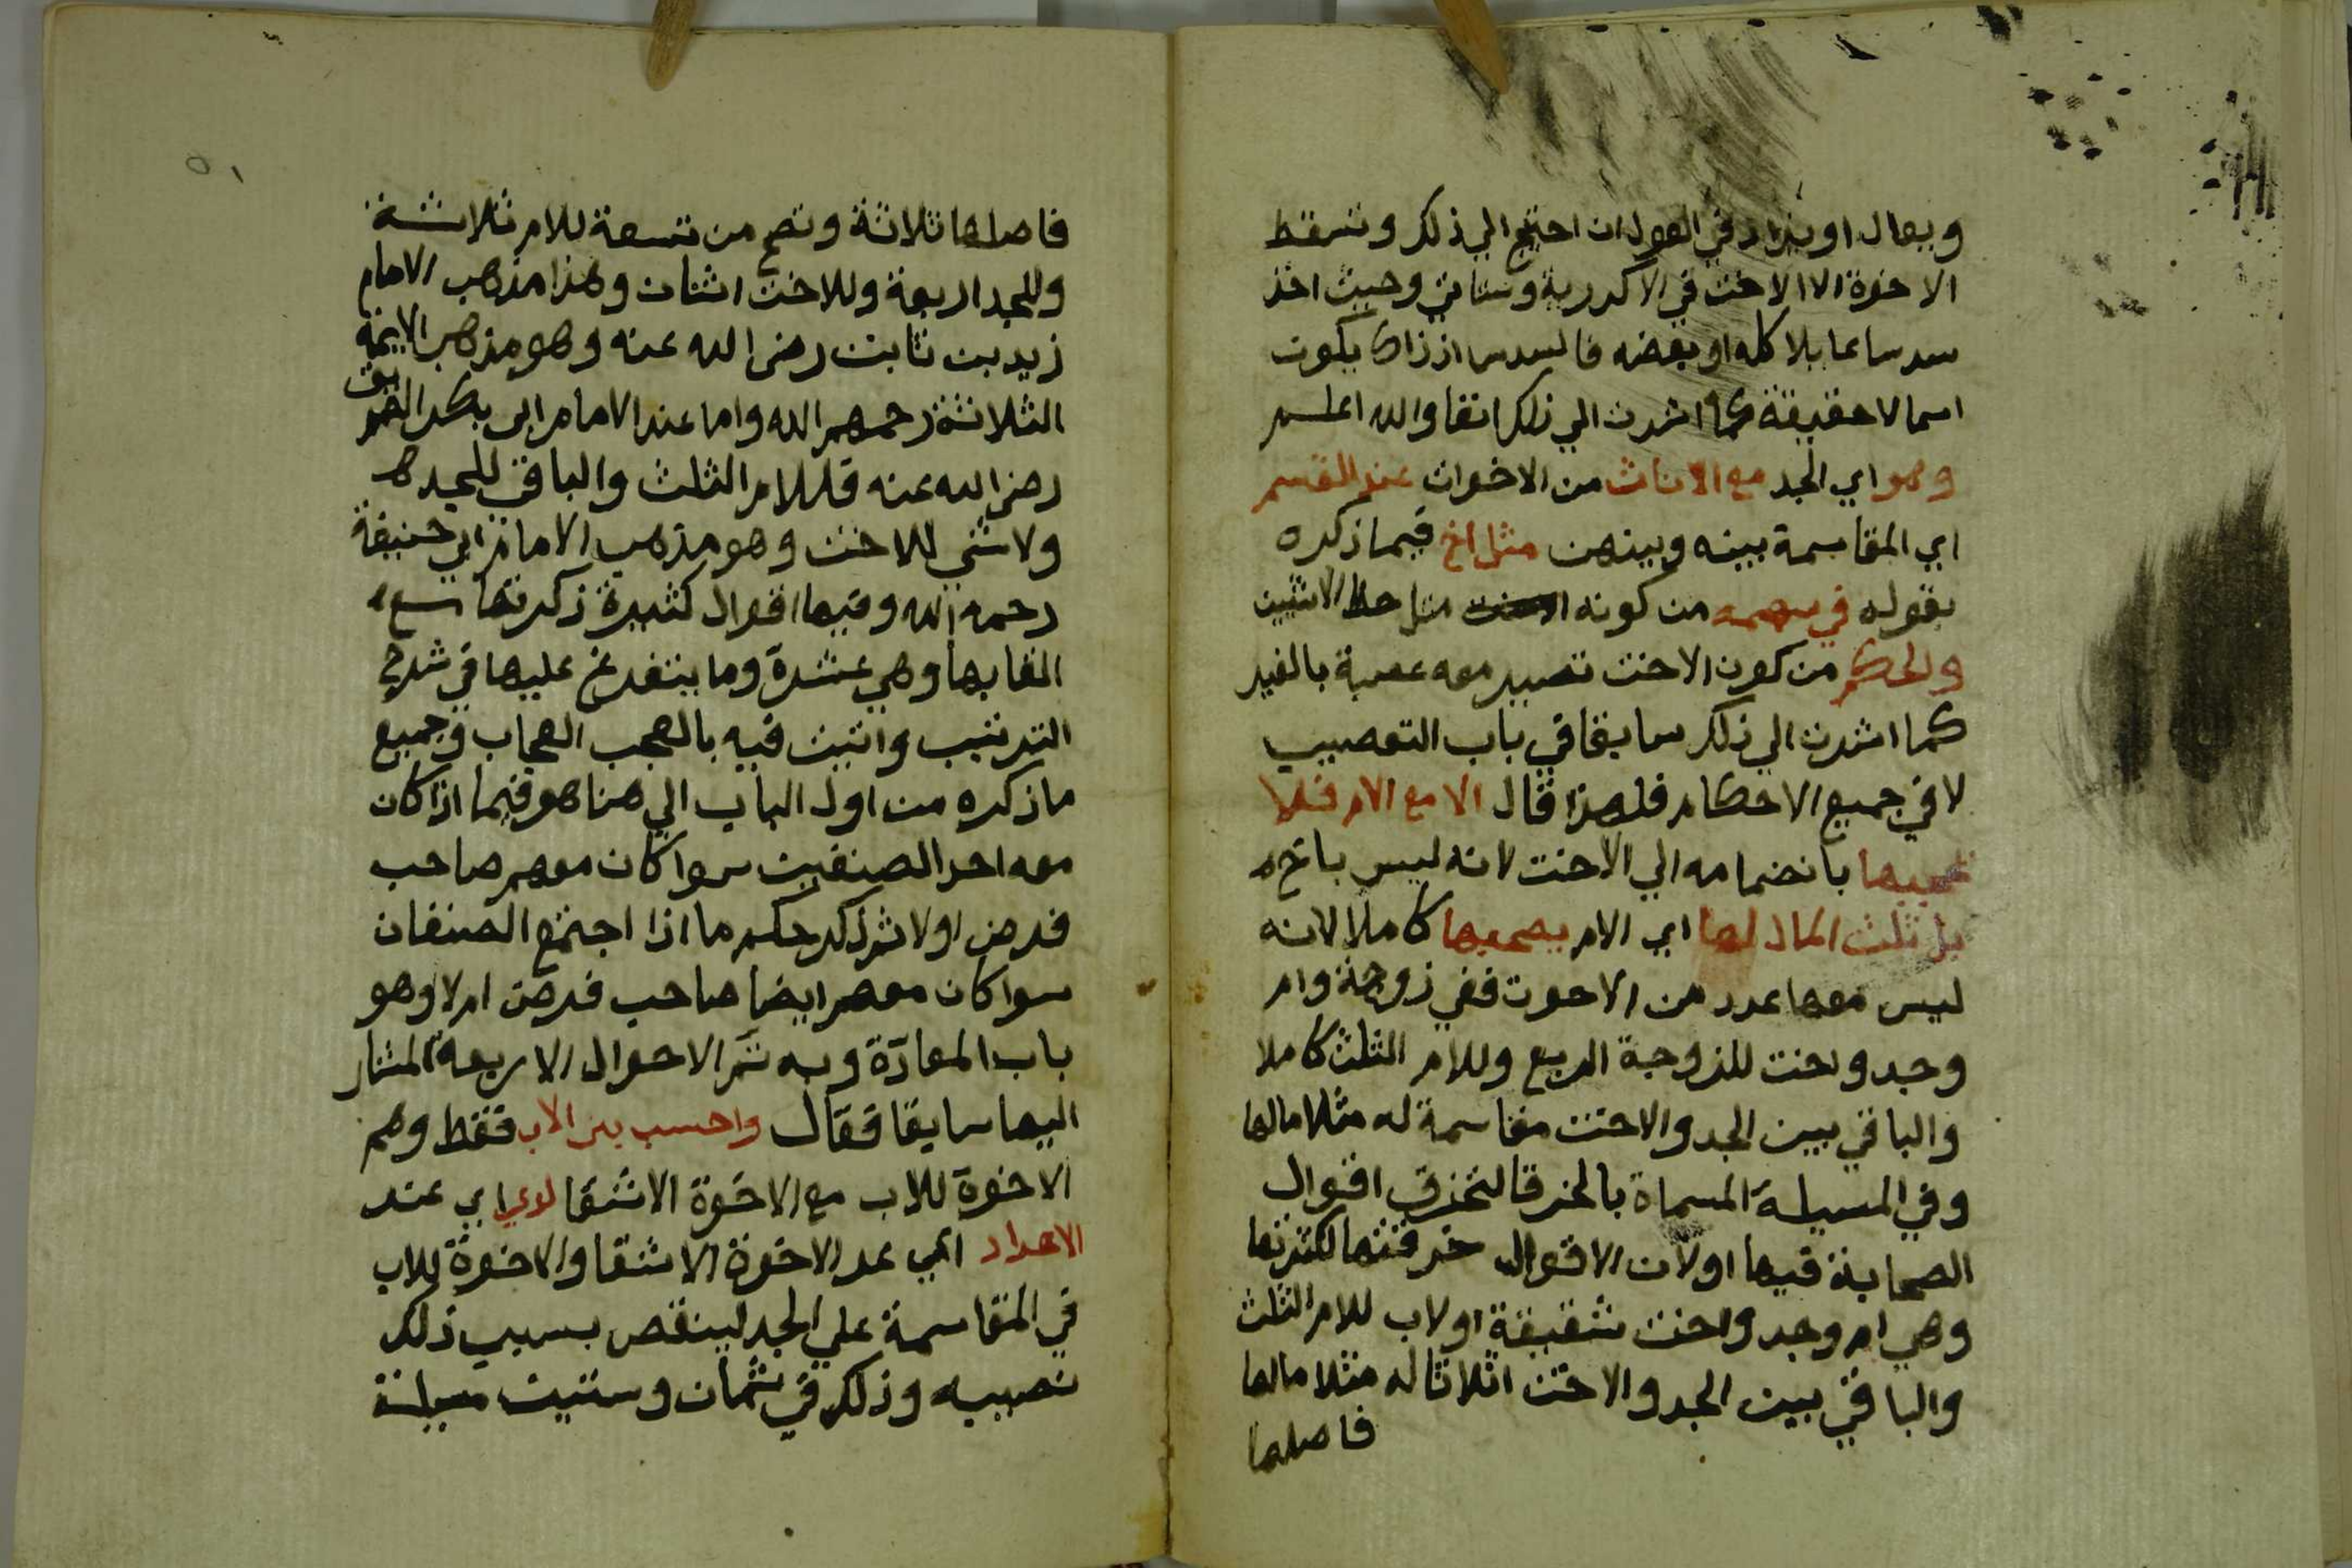 ويعال او يزاد في العول ان احتيج الي ذلك وتسقط
الاخوة الا الاخت في الاكدرية وستاتي وحيث اخذ
سدسا عايلا كله او بعضه فالسدس اذ ذاك يكون
اسما لا حقيقة كما اشرت الي ذلك انفا والله اعلم
وهو اي الجد مع الاناث من الاخوات عند القسم
اي المقاسمة بينه وبينهن مثل اخ فيما ذكره
بقوله في سهمه من كونه مثل حظ الانثيين
والحكم من كون الاخت تصير معه عصبة بالغير
كما اشرت الي ذلك سابقا في باب التعصيب
لا في جميع الاحكام فلهذا قال الا مع الام فلا
يحجبها بانضمامه الي الاخت لانه ليس باخ
بل ثلث المال لها اي الام يصحبها كاملا لانه
ليس معها عدد من الاخوت ففي زوجة وام
وجد واخت للزوجة الربع وللام الثلث كاملا
والباقي بين الجد والاخت مقاسمة له مثلا مالها
وفي المسيلة المسماة بالخرقا لتخرق اقوال
الصحابة فيها او لان الاقوال خرقتها لكثرتها
وهي ام وجد واخت شقيقة او لاب للام الثلث
والباقي بين الجد والاخت اثلاثا له مثلا مالها
فاصلها
٥١
فاصلها ثلاثة وتصح من تسعة للام ثلاثة
وللجد اربعة وللاخت اثنان وهذا مذهب الامام
زيد بن ثابت رضى الله عنه وهو مذهب الايمة
الثلاثة رحمهم الله واما عند الامام ابى بكر الصديق
رضى الله عنه فللام الثلث والباقي للجد
ولا شي للاخت وهو مذهب الامام ابي حنيفة
رحمه الله وفيها اقوال كثيرة ذكرتها مع
القابها وهي عشرة وما يتفرع عليها في شرح
الترتيب واتيت فيه بالعجب العجاب وجميع
ما ذكره من اول الباب الي هنا هو فيما اذا كان
معه احد الصنفين سوا كان معهم صاحب
فرض اولا ثم ذكر حكم ما اذا اجتمع الصنفان
سوا كان معهم ايضا صاحب فرض ام لا وهو
باب المعادّة وبه تتم الاحوال الاربعة المشار
اليها سابقا فقال واحسب بنى الاب فقط وهم
الاخوة للاب مع الاخوة الاشقا لدي اي عند
الاعداد اي عد الاخوة الاشقا والاخوة للاب
في المقاسمة علي الجد لينقص بسبب ذلك
نصيبه وذلك في ثمان وستين مسيلة